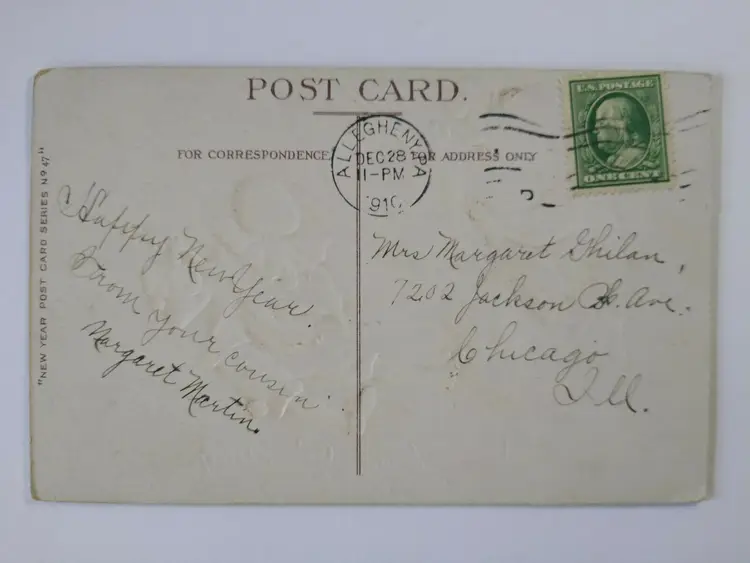 POST CARD.
FOR CORRESPONDENCE.
FOR ADDRESS ONLY
ALLEGHENY PA
DEC 28
11-PM
1910
U.S. POSTAGE
ONE CENT
"NEW YEAR POST CARD SERIES Nº 47"
Happy New Year.
From your cousin
Margaret Martin.
Mrs Margaret
7202 Jackson Ave.
Chicago
Ill.